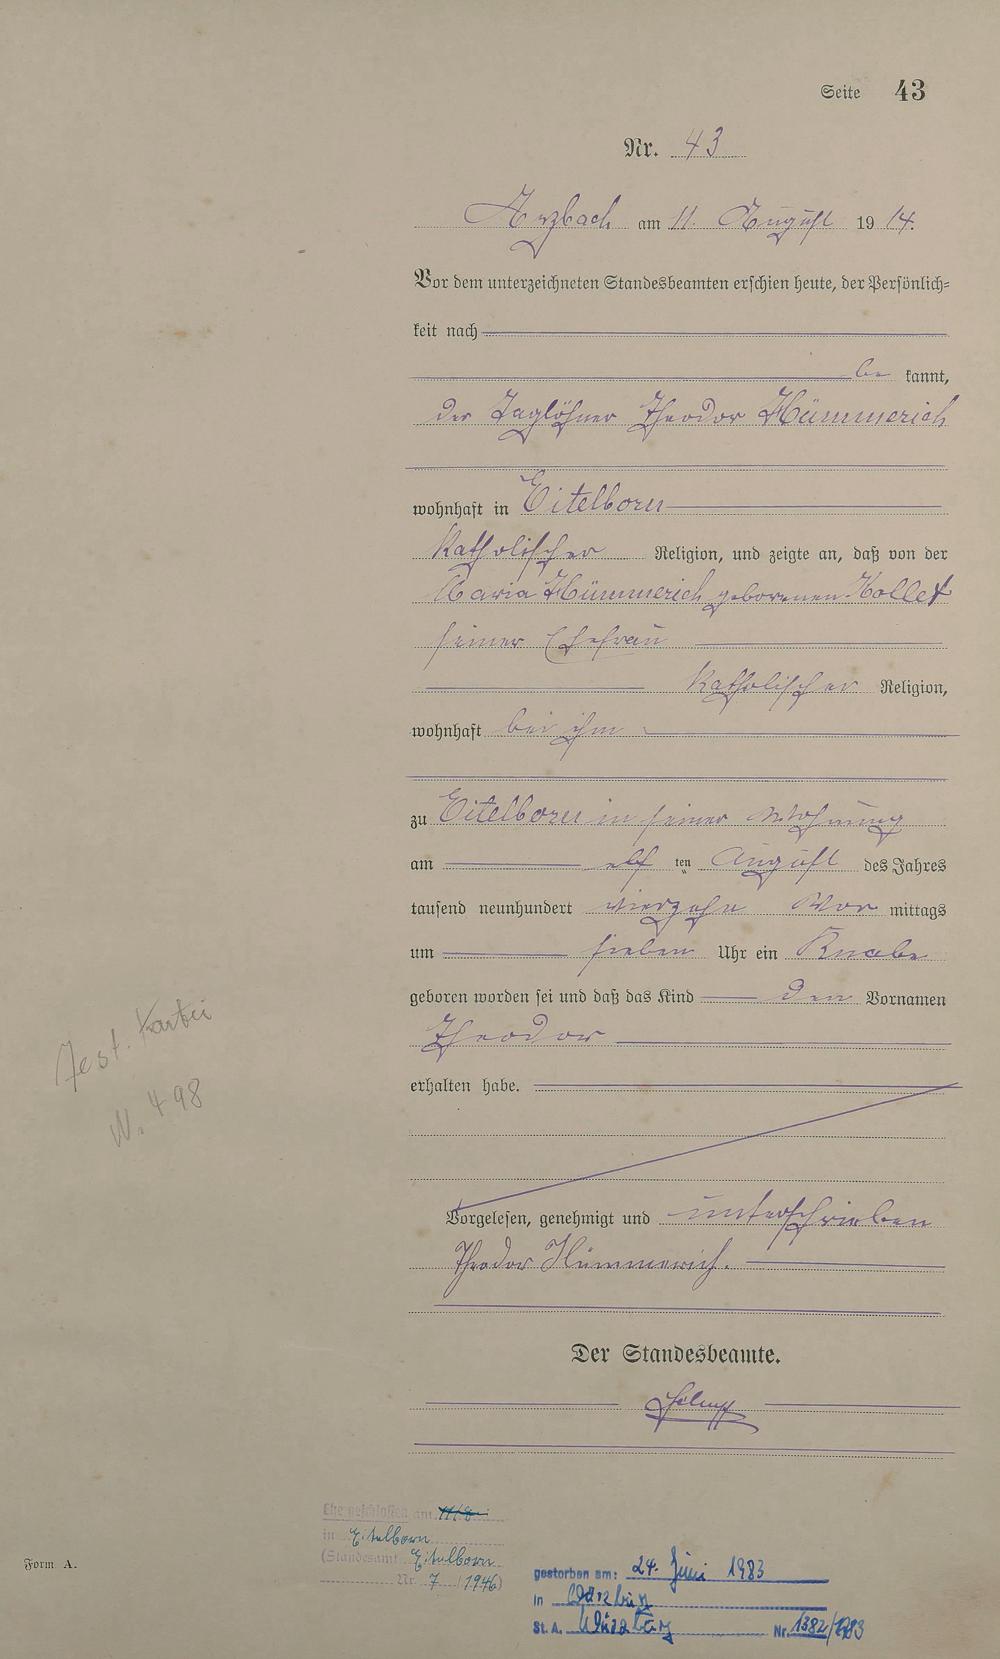 Seite 43
Nr. 43
Arzbach am 11. August 1914.
Vor dem unterzeichneten Standesbeamten erschien heute, der Persönlich-
keit nach
be kannt,
der Taglöhner Theodor Hümmerich
wohnhaft in Eitelborn
katholischer Religion, und zeigte an, daß von der
Maria Hümmerich geborenen Kollet
seiner Ehefrau
katholischer Religion,
wohnhaft bei ihm
zu Eitelborn in seiner Wohnung
am elf ten August des Jahres
tausend neunhundert vierzehn Vor mittags
um sieben Uhr ein Knabe
geboren worden sei und daß das Kind den Vornamen
Theodor
erhalten habe.
Vorgelesen, genehmigt und unterschrieben
Theodor Hümmerich.
Der Standesbeamte.
Test. Kartei
N. 498
Ehe geschlossen am
in Eitelborn
(Standesamt Eitelborn
Nr. 7 /1946)
Form A.
gestorben am: 24. Juni 1983
in Würzburg
St. A. Würzburg Nr. 1382/1983